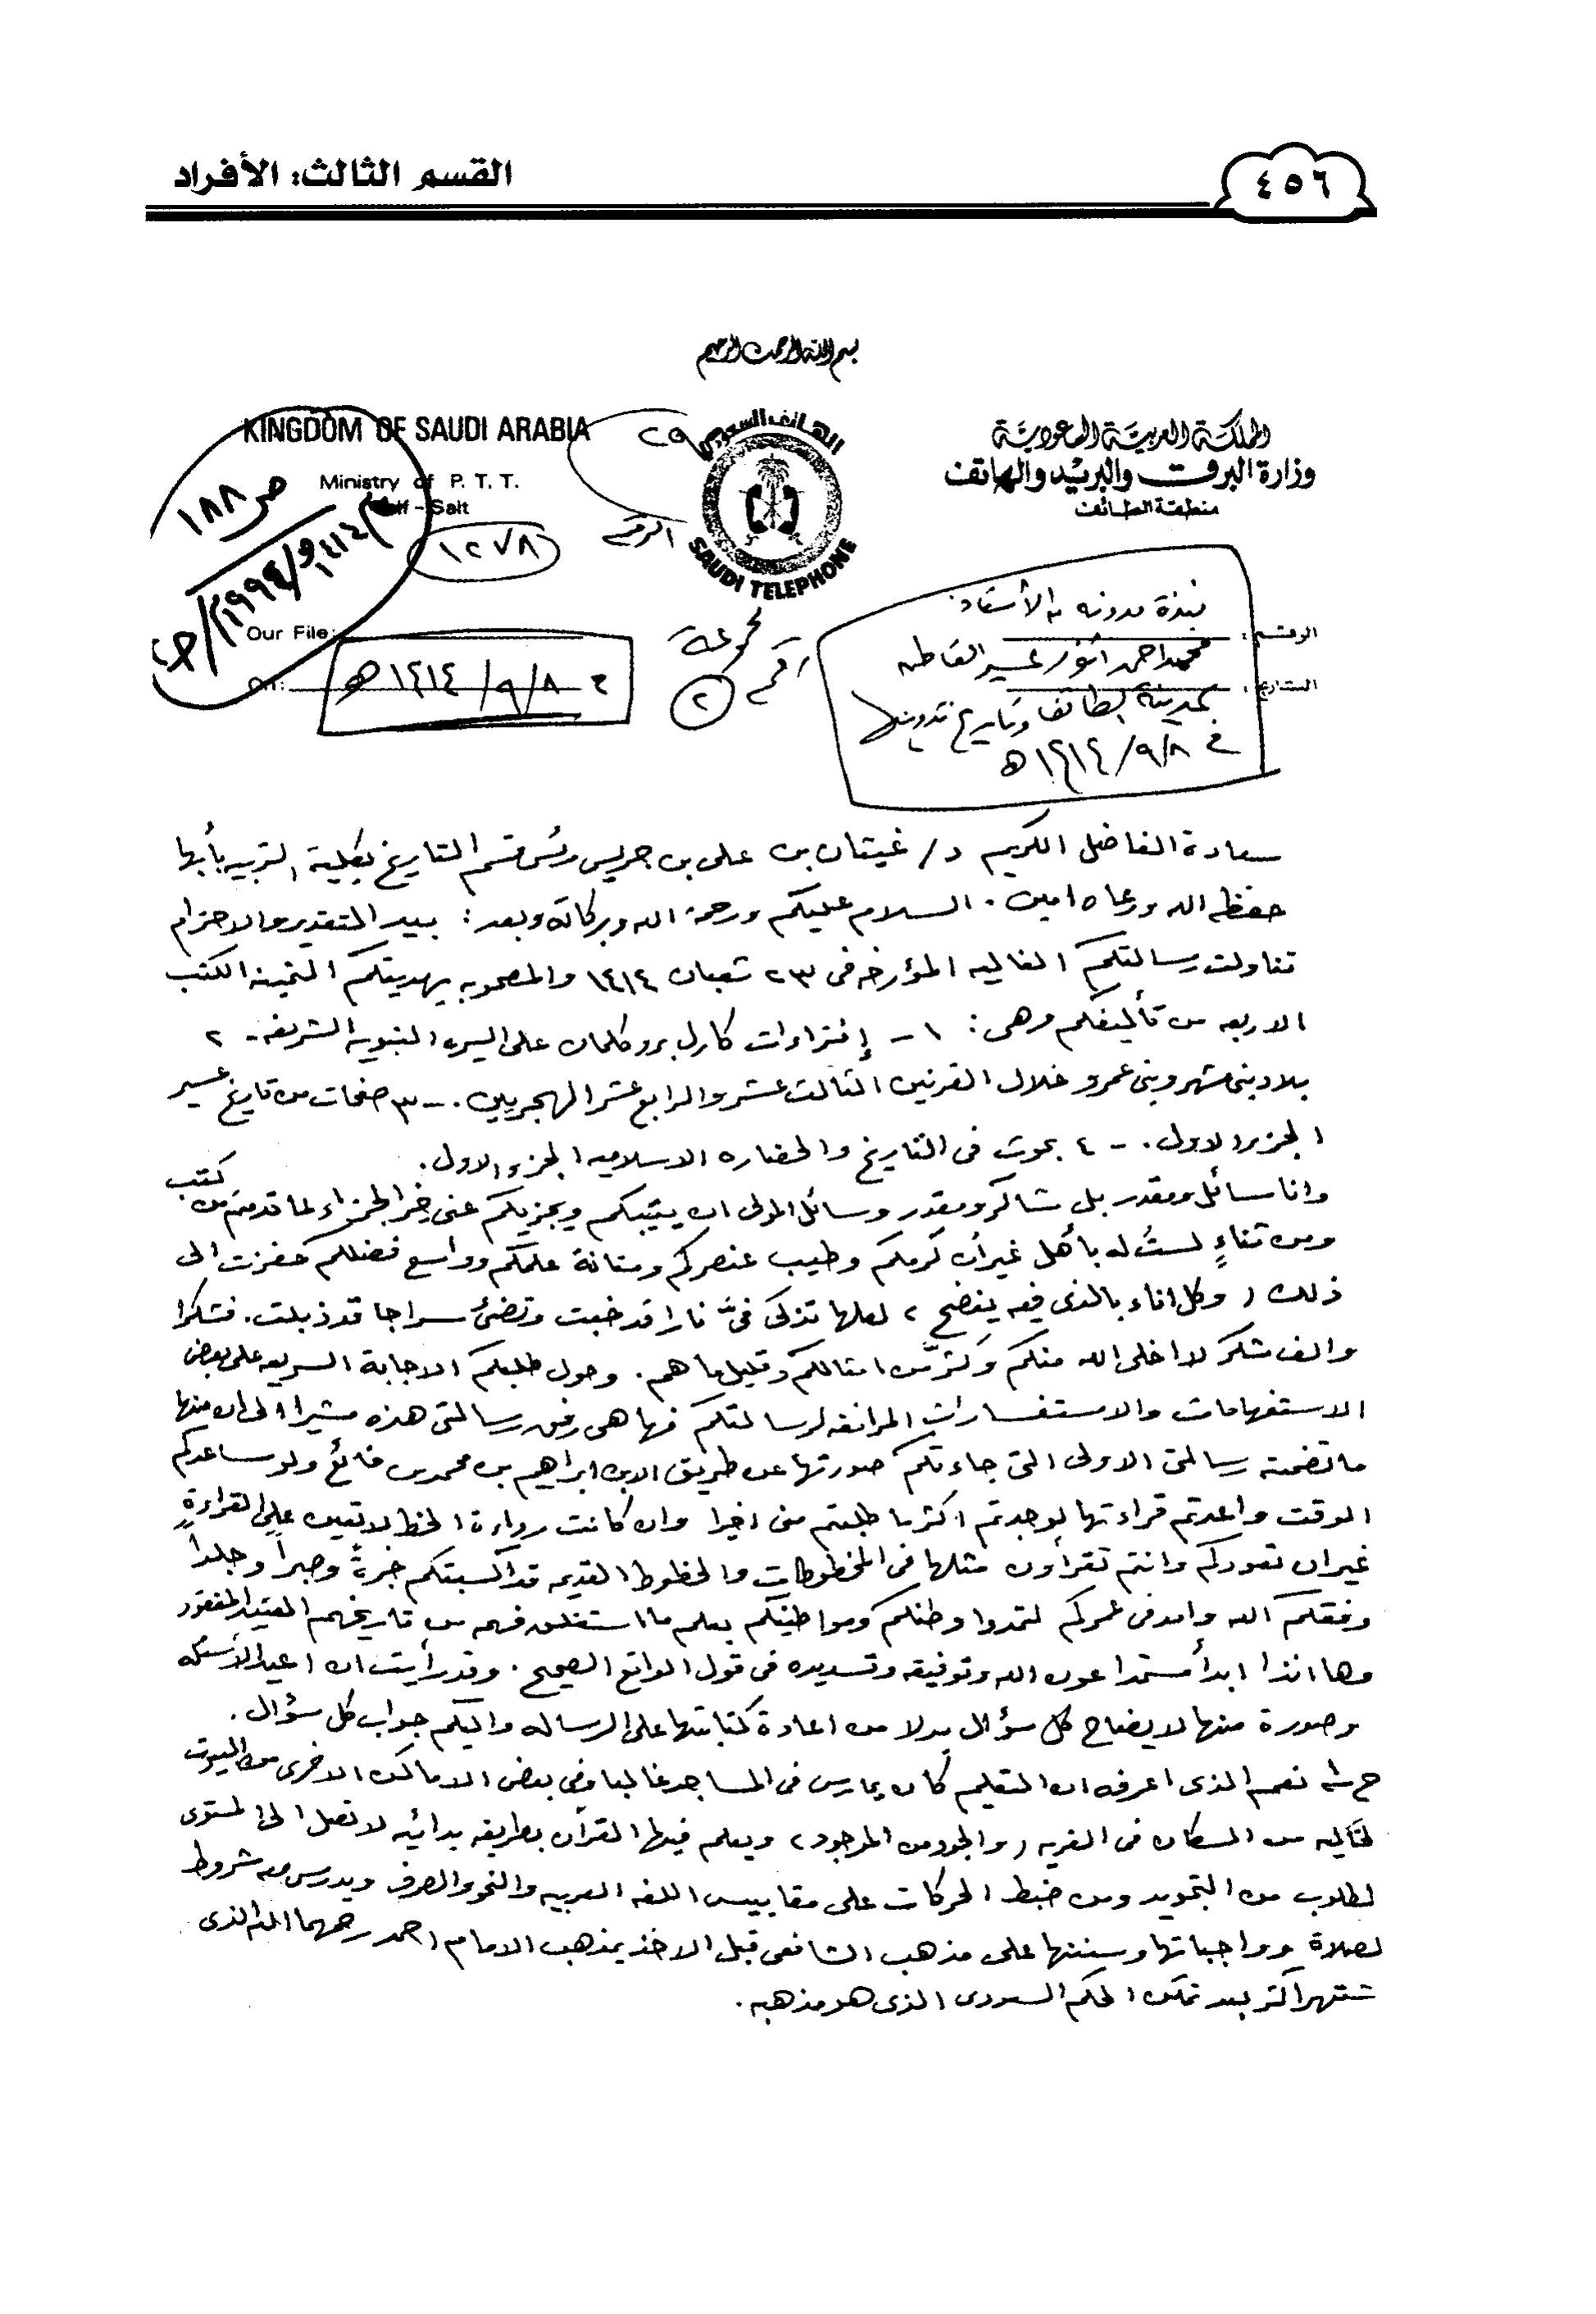 ٤٥٦
القسم الثالث: الأفراد
بسم الله الرحمن الرحيم
المملكة العربية السعودية
وزارة البرق والبريد والهاتف
منطقة الطائف
الهاتف السعودي
SAUDI TELEPHONE
KINGDOM OF SAUDI ARABIA
Ministry of P. T. T.
٢٩
ص ١٨٨
الرقم
١٢٧٨
الرقم:
التاريخ:
Our File:
نبذة مدونة من الأستاذ
محمد احمد انور عسير القاطن
بمدينة الطائف وتاريخ تدوينها
في ٨/٩/١٤١٤ه
مجموعة
رقم
٢
في ٨/٩/١٤١٤ه
سعادة الفاضل الكريم د/ غيثان بن على بن جريس رئيس قسم التاريخ بكلية التربيه بأبها
حفظه الله ورعاه امين . السلام عليكم ورحمة الله وبركاته وبعد : بيد التقدير والاحترام
تناولت رسالتكم الغاليه المؤرخه فى ٢٣ شعبان ١٤١٤ والمصحوبه بهديتكم الثمينه الكتب
الاربعه من تأليفكم وهى : ١ - إفتراءات كارل بروكلمان على السيره النبويه الشريفه - ٢
بلاد بنى شهر وبنى عمرو خلال القرنين الثالث عشر والرابع عشر الهجريين . - ٣ صفحات من تاريخ عسير
الجزء الاول . - ٤ بحوث فى التاريخ والحضاره الاسلاميه الجزء الاول .
وانا سائل ومقدر بل شاكر ومقدر وسائل المولى ان يثيبكم ويجزيكم عنى خير الجزاء لما قدمتم من كتب
ومن ثناءٍ لستُ له بأهل غير أن كرمكم وطيب عنصركم ومتانة علمكم وواسع فضلكم حفزت الى
ذلك ( وكل اناء بالذى فيه ينضح ) لعلها تذكى فىَّ نارا قد خبت وتضئ سراجا قد ذبلت . فشكرا
والف شكر لا اخلى الله منكم وكثر من امثالكم وقليل ما هم . وحول طلبكم الاجابة السريعه على بعض
الاستفهامات والاستفسارات المرافقه لرسالتكم فها هى رفق رسالتى هذه مشيرا الى ان منها
ما تضمنته رسالتى الاولى التى جاءتكم صورتها عن طريق الابن ابراهيم بن محمد بن فائع ولو ساعدكم
الوقت واعدتم قراءتها لوجدتم اكثر ما طلبتم منى اخيرا وان كانت رداءة الخط لا تعين على القراءةِ
غير ان تعودكم وانتم تقرأون مثلها فى المخطوطات والخطوط القديمه قد اكسبتكم خبرةً وصبراً وجلداً
وفقكم الله وامد فى عمركم لتمدوا وطنكم ومواطنيكم بعلم ما استغلق فهمه من تاريخهم العتيد المفقود
وها انذا ابدأ مستمدا عون الله وتوفيقه وتسديده فى قول الواقع الصحيح . وقد رأيت ان اعيد الأسئله
وصورة منها لايضاح كل سؤال بدلا من اعادة كتابتها على الرساله واليكم جواب كل سؤال .
نعم الذى اعرفه ان التعليم كان يمارس فى المساجد غالبا وفى بعض الاماكن الاخرى من البيوت
لخاليه من السكان فى القريه ( والجود من الموجود ) ويعلم فيها القرآن بطريقه بدائيه لا تصل الى المستوى
لمطلوب من التجويد ومن ضبط الحركات على مقاييس اللغه العربيه والنحو والصرف ويدرس معه شروط
لصلاة وواجباتها وسننها على مذهب الشافعى قبل الاخذ بمذهب الامام احمد رحمهما الله الذى
شتهر اكثر بعد تمكن الحكم السعودى الذى هو مذهبه .